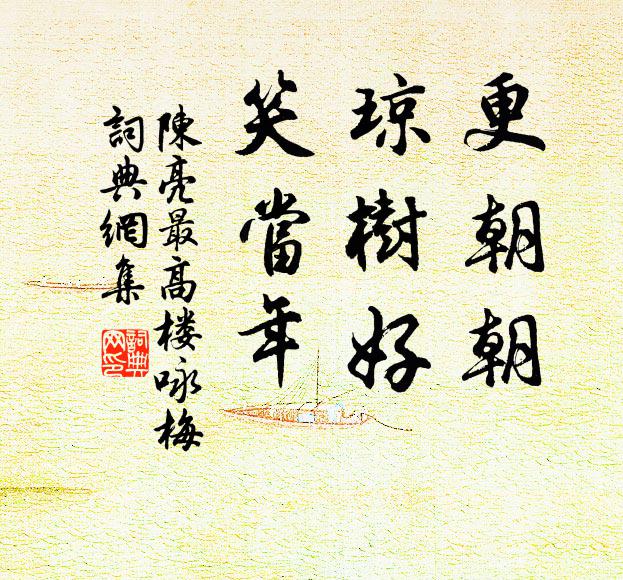 更朝朝
琼樹好
笑當年
陳亮最高楼咏梅
詞典網集
詞典网印